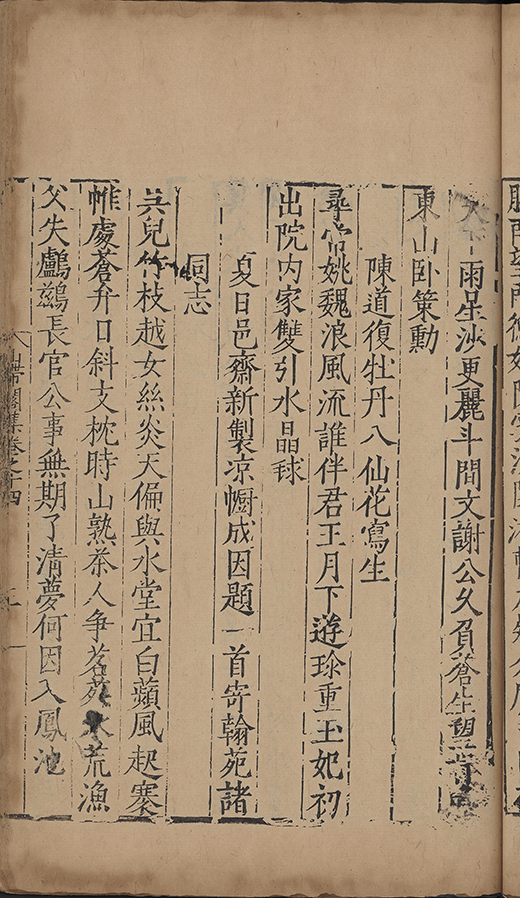 雨星沙更麗斗間文謝公久負蒼生望
東山卧策勳
陳道復牡丹八仙花寫生
尋常姚魏浪風流誰伴君王月下遊珍重玉妃初
出院内家雙引水晶毬
夏日邑齋新製凉幮成因題一首寄翰苑諸
同志
吳兒竹枝越女絲炎天偏與水堂宜白蘋風起褰
帷處蒼弁日斜支枕時山熟茶人爭茗水荒漁
父失鸕鷀長官公事無期了清夢何因入鳳池
山帶閣集卷之十四